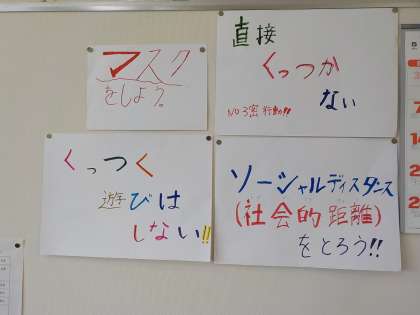 マスク
をしよう。
直接
くっつか
ない
NO3密行動!!
くっつく
遊びは
しない!!
ソーシャルディスタンス
(社会的距離)
をとろう!!